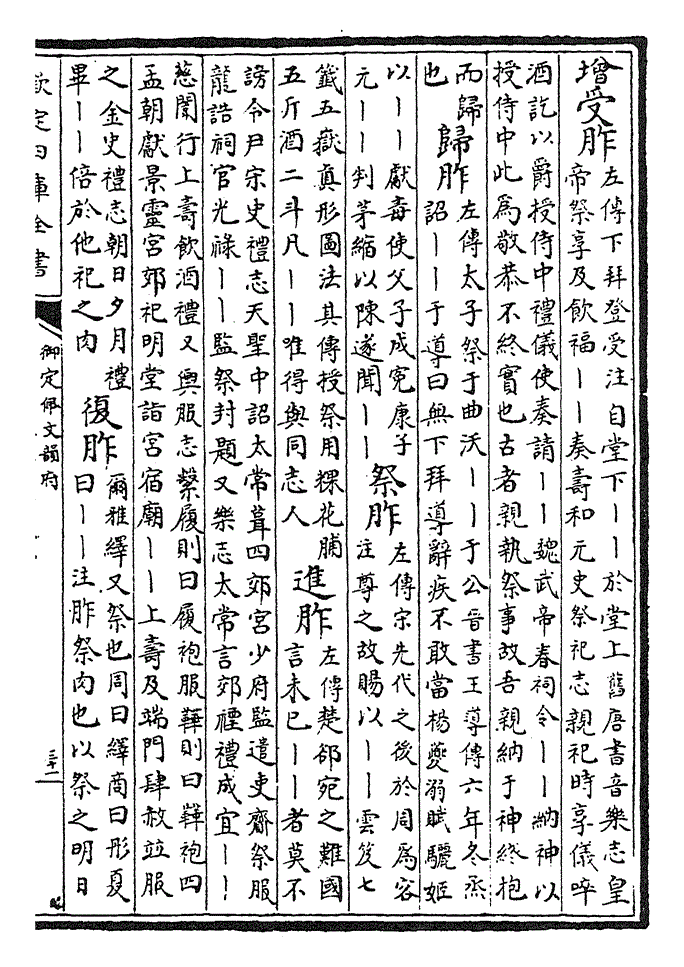 增受胙
左傳下拜登受注自堂下——於堂上舊唐書音樂志皇
帝祭享及飲福——奏壽和元史祭祀志親祀時享儀啐
酒訖以爵授侍中禮儀使奏請——魏武帝春祠令——納神以
授侍中此為敬恭不終實也古者親執祭事故吾親納于神終抱
而歸
也
歸胙
左傳太子祭于曲沃——于公晉書王導傳六年冬烝
詔——于導曰無下拜導辭疾不敢當楊夔溺賦驪姬
以——獻毒使父子成冤康子
元——判茅縮以陳遂聞——
祭胙
左傳宋先代之後於周為客
注尊之故賜以——雲笈七
籤五嶽真形圖法其傳授祭用粿花脯
五斤酒二斗凡——唯得與同志人
進胙
左傳楚郤宛之難國
言未已——者莫不
謗令尹宋史禮志天聖中詔太常葺四郊宮少府監遣吏齎祭服
龍誥祠官光祿——監祭封題又樂志太常言郊禋禮成宜——
慈闈行上壽飲酒禮又輿服志繫履則曰履袍服鞾則曰鞾袍四
孟朝獻景靈宮郊祀明堂詣宮宿廟——上壽及端門肆赦竝服
之金史禮志朝日夕月禮
畢——倍於他祀之肉
復胙
爾雅繹又祭也周曰繹商曰肜夏
曰——注胙祭肉也以祭之明日
欽定四庫全書
御定佩文韻府
三十一